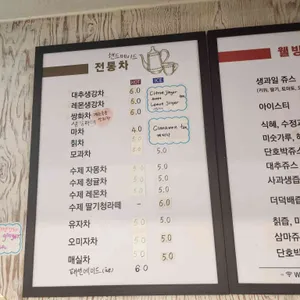 핸드메이드
전통차
HOT ICE
대추생강차 6.0
레몬생강차 6.0
쌍화차 6.0
마차 4.0
칡차 5.0
모과차 5.0 5.0
수제 자몽차 5.0 5.0
수제 청귤차 5.0 5.0
수제 레몬차 5.0 5.0
수제 딸기청라떼 - 6.0
유자차 5.0 5.0
오미자차 5.0 5.0
매실차 5.0 5.0
6.0
Cinnamon tea
웰빙
생과일 쥬스
아이스티
식혜, 수정과
미숫가루,
단호박쥬스
사과생즙
더덕배즙
칡즙,
삼마쥬
단호박